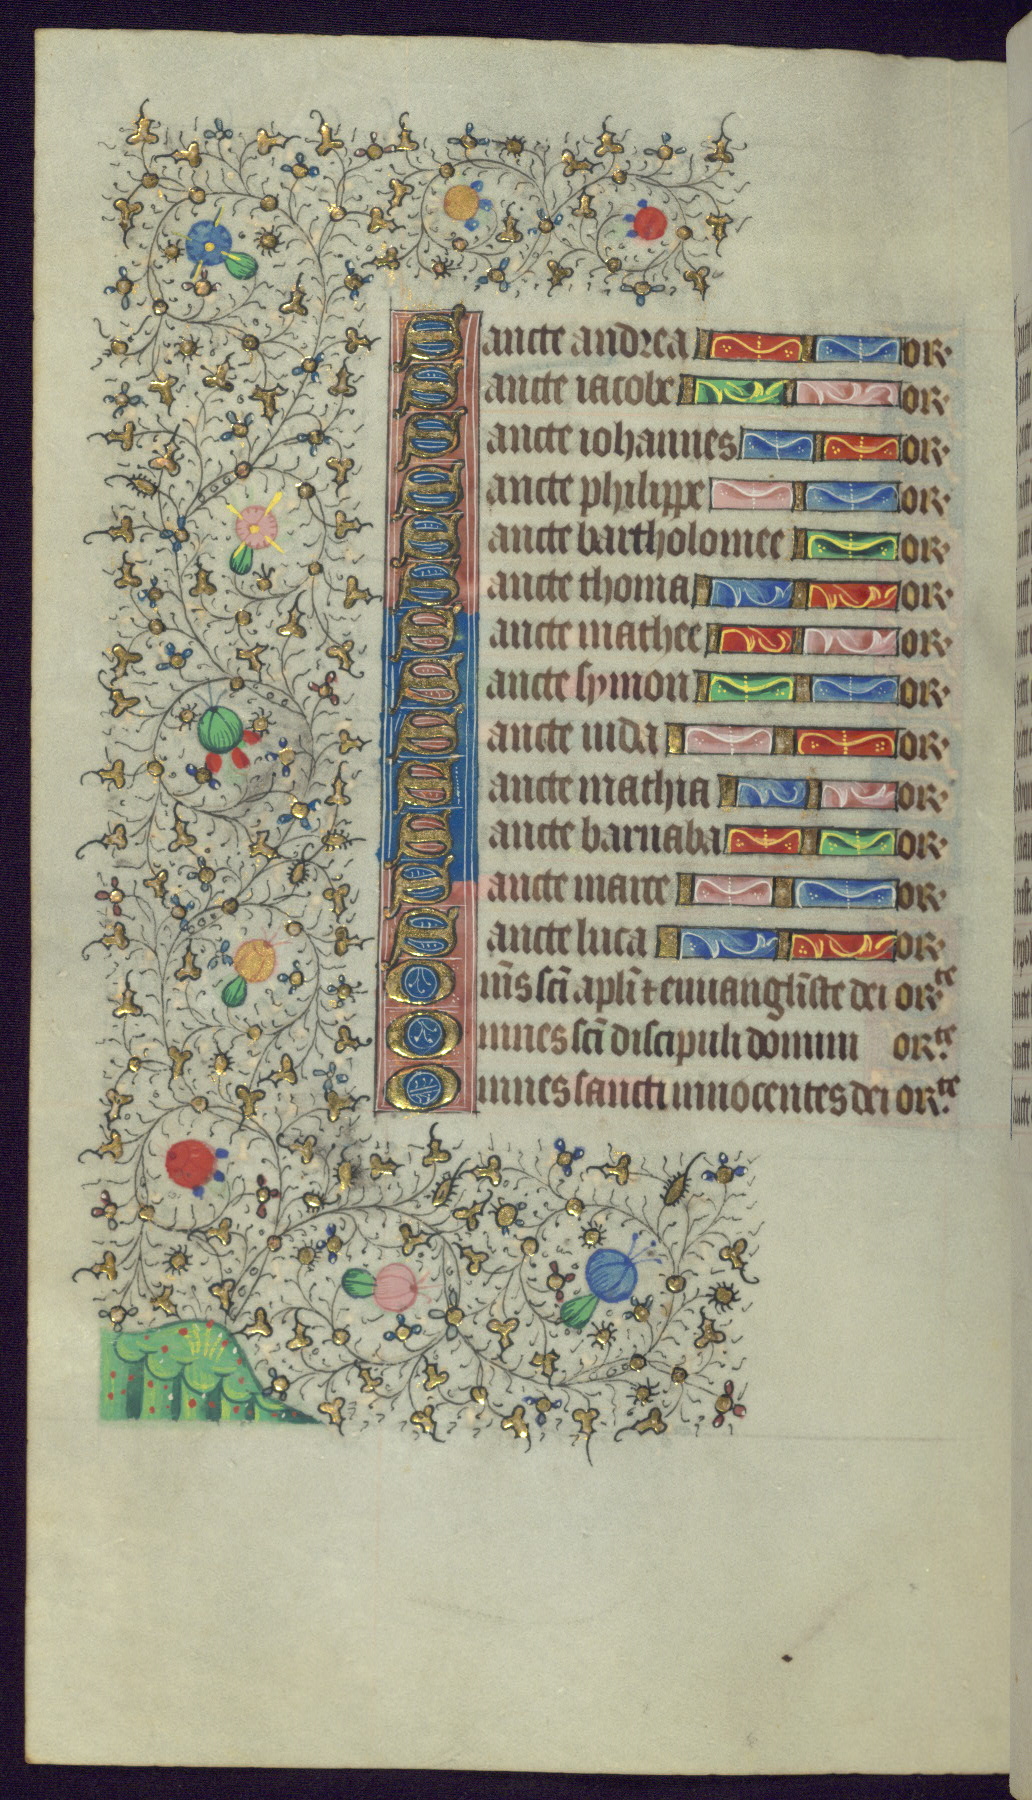 Sancte andrea or
Sancte iacobe or
Sancte iohannes or
Sancte philippe or
Sancte bartholomee or
Sancte thoma or
Sancte mathee or
Sancte symon or
Sancte iuda or
Sancte mathia or
Sancte barnaba or
Sancte marce or
Sancte luca or
Om̄s sc̄i apl̄i ⁊ euuangl̄iste dei orte
Omnes sc̄i discipuli domini orte
Omnes sancti innocentes dei orte